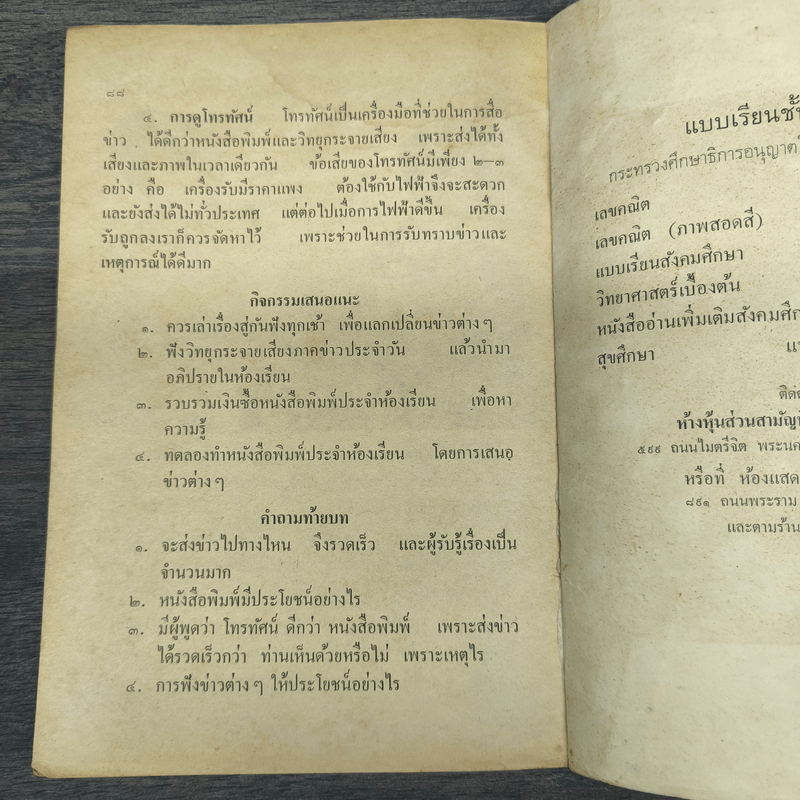 ๘๘
๔. การดูโทรทัศน์ โทรทัศน์เป็นเครื่องมือที่ช่วยในการสื่อ
ข่าว ได้ดีกว่าหนังสือพิมพ์และวิทยุกระจายเสียง เพราะส่งได้ทั้ง
เสียงและภาพในเวลาเดียวกัน ข้อเสียของโทรทัศน์มีเพียง ๒—๓
อย่าง คือ เครื่องรับมีราคาแพง ต้องใช้กับไฟฟ้าจึงจะสะดวก
และยังส่งได้ไม่ทั่วประเทศ แต่ต่อไปเมื่อการไฟฟ้าดีขึ้น เครื่อง
รับถูกลงเราก็ควรจัดหาไว้ เพราะช่วยในการรับทราบข่าวและ
เหตุการณ์ได้ดีมาก
กิจกรรมเสนอแนะ
๑. ควรเล่าเรื่องสู่กันฟังทุกเช้า เพื่อแลกเปลี่ยนข่าวต่าง ๆ
๒. ฟังวิทยุกระจายเสียงภาคข่าวประจำวัน แล้วนำมา
อภิปรายในห้องเรียน
๓. รวบรวมเงินซื้อหนังสือพิมพ์ประจำห้องเรียน เพื่อหา
ความรู้
๔. ทดลองทำหนังสือพิมพ์ประจำห้องเรียน โดยการเสนอ
ข่าวต่าง ๆ
คำถามท้ายบท
๑. จะส่งข่าวไปทางไหน จึงรวดเร็ว และผู้รับรู้เรื่องเป็น
จำนวนมาก
๒. หนังสือพิมพ์มีประโยชน์อย่างไร
๓. มีผู้พูดว่า โทรทัศน์ ดีกว่า หนังสือพิมพ์ เพราะส่งข่าว
ได้รวดเร็วกว่า ท่านเห็นด้วยหรือไม่ เพราะเหตุไร
๔. การฟังข่าวต่าง ๆ ให้ประโยชน์อย่างไร
แบบเรียนชั้
กระทรวงศึกษาธิการอนุญาต
เลขคณิต
เลขคณิต (ภาพสอดสี)
แบบเรียนสังคมศึกษา
วิทยาศาสตร์เบื้องต้น
หนังสืออ่านเพิ่มเติมสังคมศึก
สุขศึกษา แ
ติด
ห้างหุ้นส่วนสามัญ
๕๙๙ ถนนไมตรีจิต พระนค
หรือที่ ห้องแสด
๘๙๑ ถนนพระราม
และตามร้าน